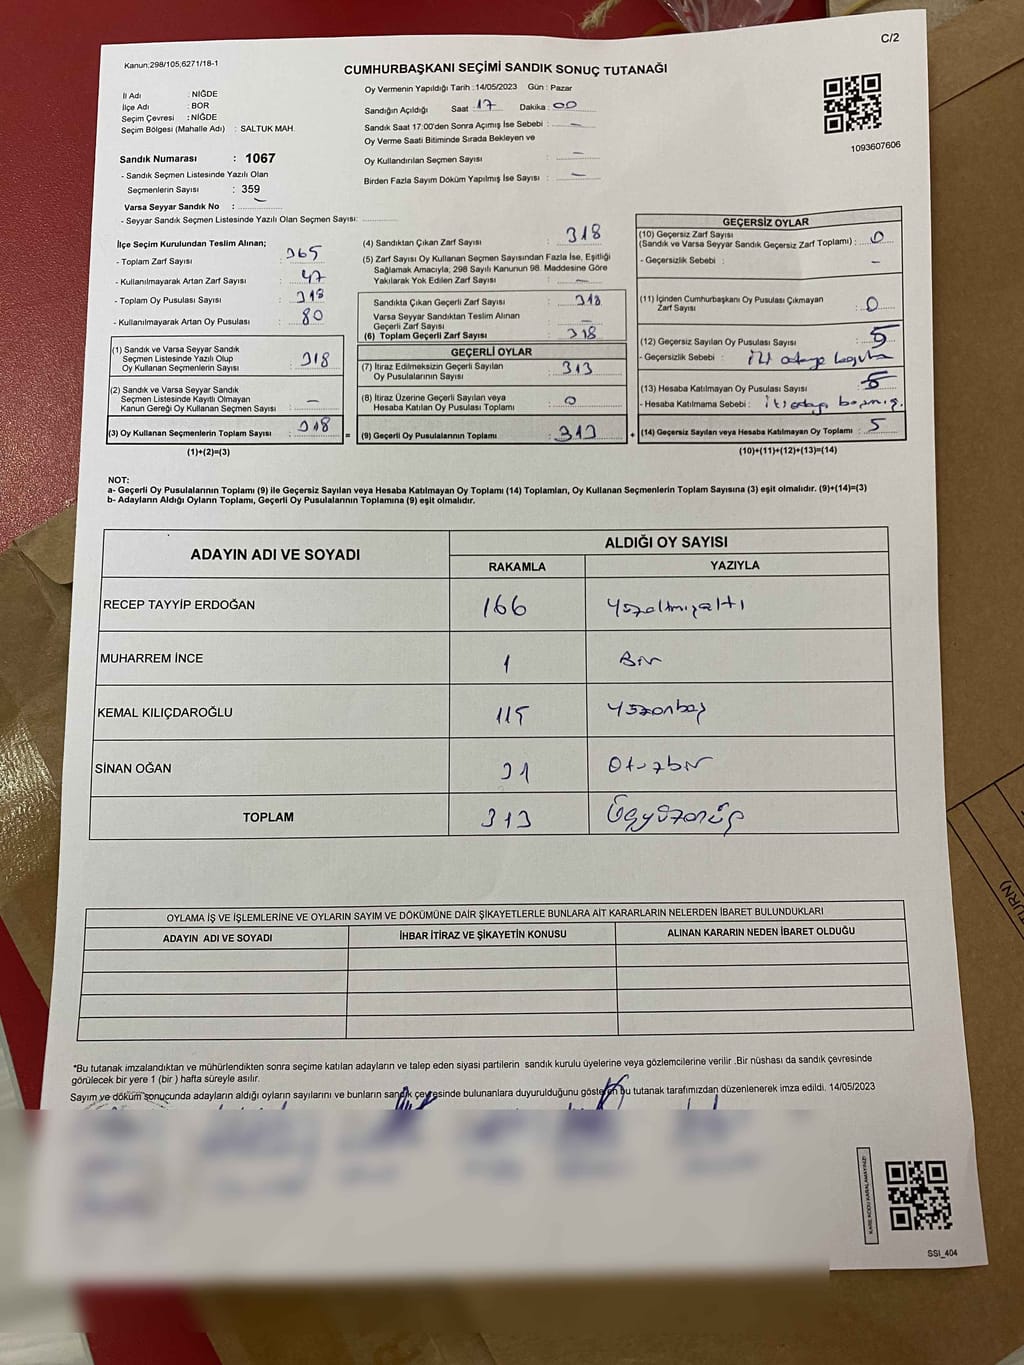 C/2
Kanun;298/105,6271/18-1
CUMHURBAŞKANI SEÇİMİ SANDIK SONUÇ TUTANAĞI
İl Adı : NİĞDE
İlçe Adı : BOR
Seçim Çevresi : NİĞDE
Seçim Bölgesi (Mahalle Adı) : SALTUK MAH.
Oy Vermenin Yapıldığı Tarih :14/05/2023 Gün : Pazar
Sandığın Açıldığı Saat :17 Dakika :00
Sandık Saat 17:00'den Sonra Açımış İse Sebebi : –
Oy Verme Saati Bitiminde Sırada Bekleyen ve
Oy Kullandırılan Seçmen Sayısı : –
Birden Fazla Sayım Döküm Yapılmış İse Sayısı : –
1093607606
Sandık Numarası : 1067
- Sandık Seçmen Listesinde Yazılı Olan
Seçmenlerin Sayısı : 359
Varsa Seyyar Sandık No : –
- Seyyar Sandık Seçmen Listesinde Yazılı Olan Seçmen Sayısı:
İlçe Seçim Kurulundan Teslim Alınan;
- Toplam Zarf Sayısı : 365
- Kullanılmayarak Artan Zarf Sayısı : 47
- Toplam Oy Pusulası Sayısı : 318
- Kullanılmayarak Artan Oy Pusulası : 80
(1) Sandık ve Varsa Seyyar Sandık
Seçmen Listesinde Yazılı Olup
Oy Kullanan Seçmenlerin Sayısı : 318
(2) Sandık ve Varsa Seyyar Sandık
Seçmen Listesinde Kayıtlı Olmayan
Kanun Gereği Oy Kullanan Seçmen Sayısı : –
(3) Oy Kullanan Seçmenlerin Toplam Sayısı : 318 =
(1)+(2)=(3)
(4) Sandıktan Çıkan Zarf Sayısı : 318
(5) Zarf Sayısı Oy Kullanan Seçmen Sayısından Fazla İse, Eşitliği
Sağlamak Amacıyla, 298 Sayılı Kanunun 98. Maddesine Göre
Yakılarak Yok Edilen Zarf Sayısı : –
Sandıkta Çıkan Geçerli Zarf Sayısı : 318
Varsa Seyyar Sandıktan Teslim Alınan
Geçerli Zarf Sayısı : –
(6) Toplam Geçerli Zarf Sayısı : 318
GEÇERLİ OYLAR
(7) İtiraz Edilmeksizin Geçerli Sayılan
Oy Pusulalarının Sayısı : 313
(8) İtiraz Üzerine Geçerli Sayılan veya
Hesaba Katılan Oy Pusulaları Toplamı : 0
(9) Geçerli Oy Pusulalarının Toplamı : 313 +
GEÇERSİZ OYLAR
(10) Geçersiz Zarf Sayısı
(Sandık ve Varsa Seyyar Sandık Geçersiz Zarf Toplamı) : 0
- Geçersizlik Sebebi : –
(11) İçinden Cumhurbaşkanı Oy Pusulası Çıkmayan
Zarf Sayısı : 0
(12) Geçersiz Sayılan Oy Pusulası Sayısı : 5
- Geçersizlik Sebebi :
(13) Hesaba Katılmayan Oy Pusulası Sayısı :
- Hesaba Katılmama Sebebi :
(14) Geçersiz Sayılan veya Hesaba Katılmayan Oy Toplamı : 5
(10)+(11)+(12)+(13)=(14)
NOT:
a- Geçerli Oy Pusulalarının Toplamı (9) ile Geçersiz Sayılan veya Hesaba Katılmayan Oy Toplamı (14) Toplamları, Oy Kullanan Seçmenlerin Toplam Sayısına (3) eşit olmalıdır. (9)+(14)=(3)
b- Adayların Aldığı Oyların Toplamı, Geçerli Oy Pusulalarının Toplamına (9) eşit olmalıdır.
ADAYIN ADI VE SOYADI ALDIĞI OY SAYISI
RAKAMLA YAZIYLA
RECEP TAYYİP ERDOĞAN 166 Yüzaltmışaltı
MUHARREM İNCE 1 Bir
KEMAL KILIÇDAROĞLU 115 Yüzonbeş
SİNAN OĞAN 31 Otuzbir
TOPLAM 313 Üçyüzonüç
OYLAMA İŞ VE İŞLEMLERİNE VE OYLARIN SAYIM VE DÖKÜMÜNE DAİR ŞİKAYETLERLE BUNLARA AİT KARARLARIN NELERDEN İBARET BULUNDUKLARI
ADAYIN ADI VE SOYADI İHBAR İTİRAZ VE ŞİKAYETİN KONUSU ALINAN KARARIN NEDEN İBARET OLDUĞU
*Bu tutanak imzalandıktan ve mühürlendikten sonra seçime katılan adayların ve talep eden siyasi partilerin sandık kurulu üyelerine veya gözlemcilerine verilir .Bir nüshası da sandık çevresinde
görülecek bir yere 1 (bir ) hafta süreyle asılır.
Sayım ve döküm sonucunda adayların aldığı oyların sayılarını ve bunların sandık çevresinde bulunanlara duyurulduğunu gösteren bu tutanak tarafımızdan düzenlenerek imza edildi. 14/05/2023
KARE KODU KARALAMAYINIZ!
SSİ_404